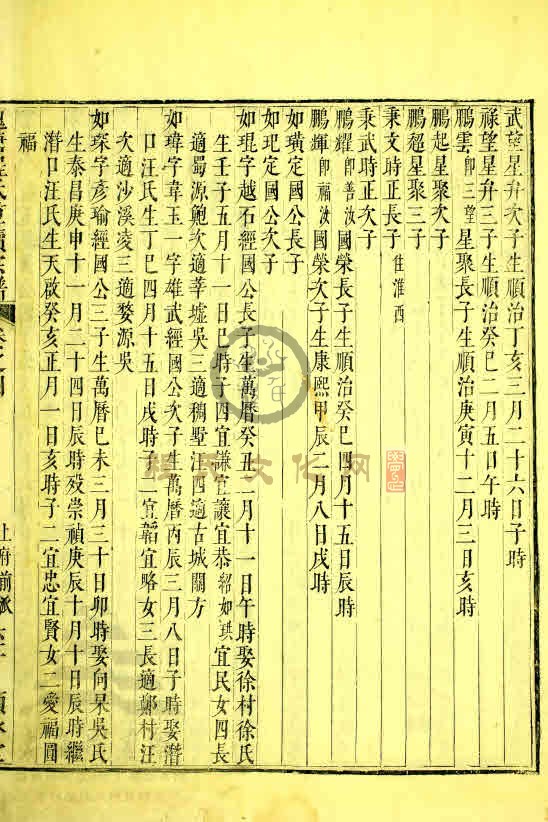 武望星升次子生順治丁亥三月二十六日子時
祿望星升三子生順治癸巳二月五日午時
鵬雲即三望星聚長子生順治庚寅十二月三日亥時
鵬起星聚次子
鵬超星聚三子
秉文時正長子住淮西
秉武時正次子
鵬耀即善汝國榮長子生順治癸巳四月十五日辰時
鵬輝即福汝國榮次子生康熙甲辰二月八日戌時
如璜定國公長子
如玘定國公次子
如琨字越石經國公長子生萬曆癸丑二月十一日午時娶徐村徐氏
生壬子五月十一日巳時子四宜謙宜讓宜恭紹如珙宜民女四長
適蜀源鮑次適莘墟吳三適稠墅汪四適古城關方
如瑋字韋玉一字雄武經國公次子生萬曆丙辰三月八日子時娶潛
口汪氏生丁巳四月十五日戌時子二宜韜宜略女三長適鄭村汪
次適沙溪凌三適婺源吳
如琛字彥瑜經國公三子生萬曆己未三月三十日卯時娶向杲吳氏
生泰昌庚申十一月二十四日辰時歿崇禎庚辰十月十日辰時繼
潛口汪氏生天啟癸亥正月一日亥時子二宜忠宜賢女二愛福圓
福
程氏文化网